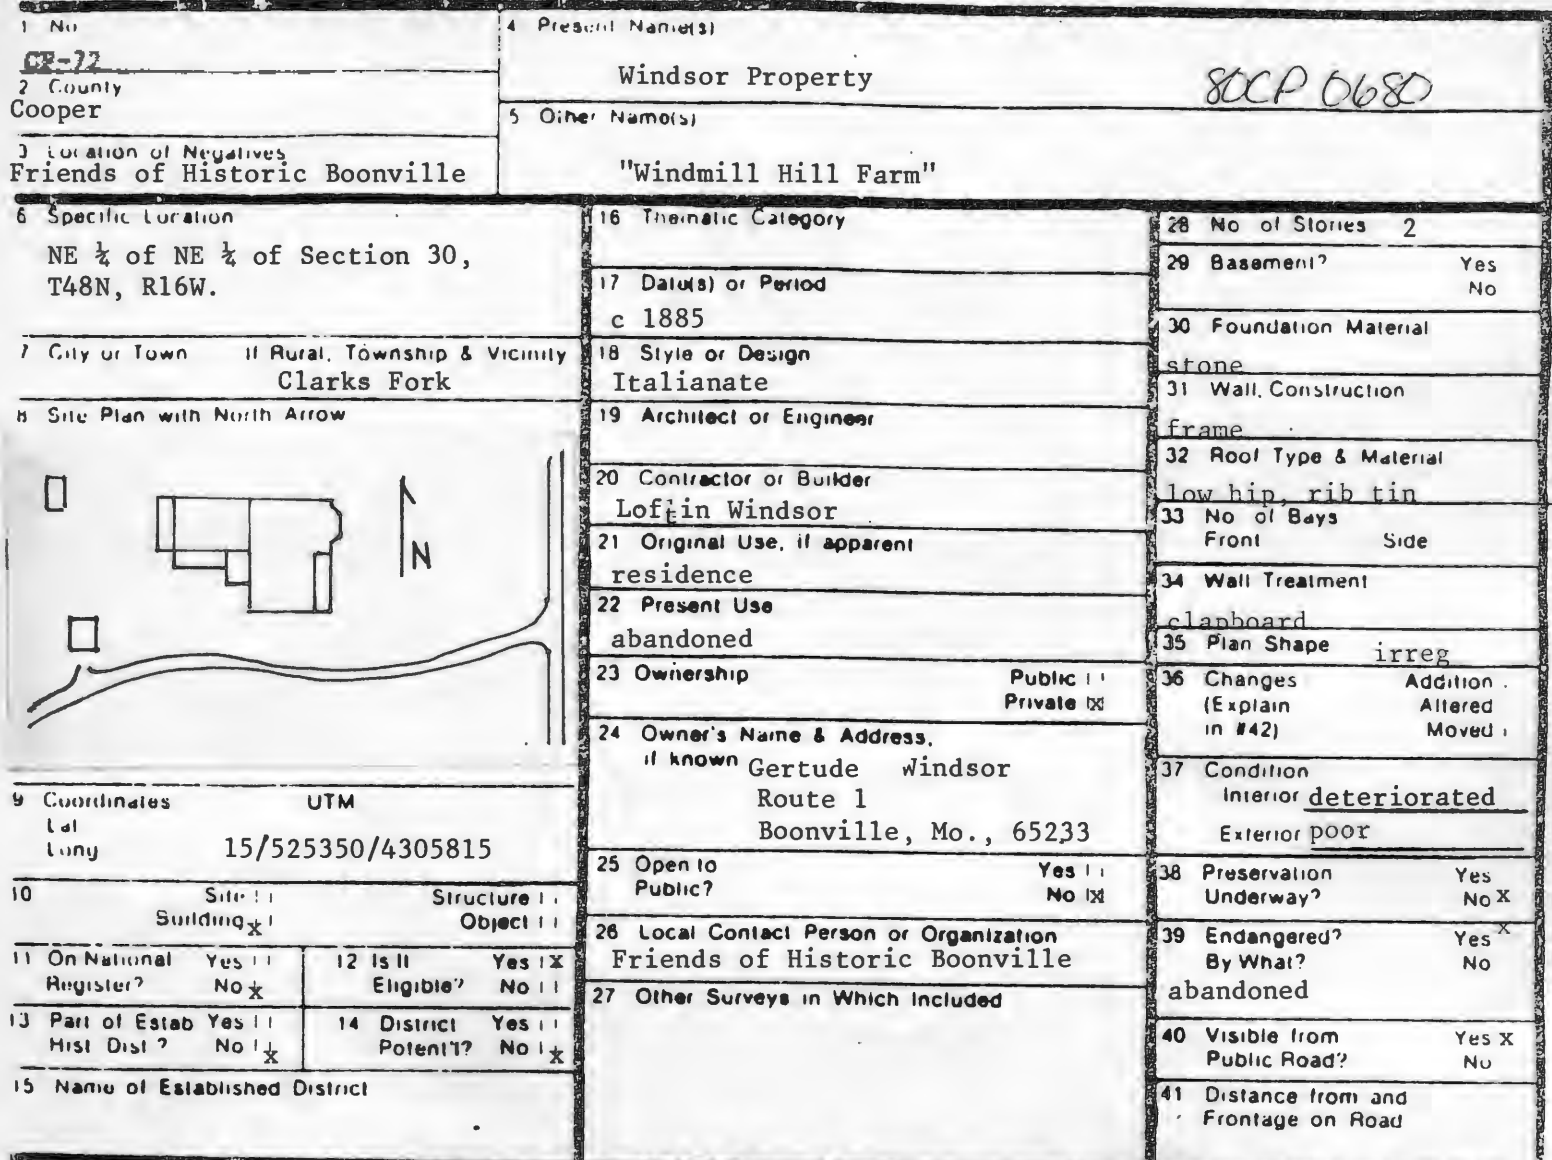 1 No
CP-72
2 County
Cooper
3 Location of Negatives
Friends of Historic Boonville
4 Present Name(s)
Windsor Property
80CP 0680
5 Other Name(s)
"Windmill Hill Farm"
6 Specific Location
NE ¼ of NE ¼ of Section 30,
T48N, R16W.
7 City or Town If Rural, Township & Vicinity
Clarks Fork
8 Site Plan with North Arrow
N
9 Coordinates UTM
Lat
Long 15/525350/4305815
10 Site Structure
Building x Object
11 On National Yes
Register? No x
12 Is It Yes x
Eligible? No
13 Part of Estab Yes
Hist Dist? No x
14 District Yes
Potent'l? No x
15 Name of Established District
16 Thematic Category
17 Date(s) or Period
c 1885
18 Style or Design
Italianate
19 Architect or Engineer
20 Contractor or Builder
Loftin Windsor
21 Original Use, if apparent
residence
22 Present Use
abandoned
23 Ownership Public
Private x
24 Owner's Name & Address,
if known Gertude Windsor
Route 1
Boonville, Mo., 65233
25 Open to Yes
Public? No x
26 Local Contact Person or Organization
Friends of Historic Boonville
27 Other Surveys in Which Included
28 No of Stories 2
29 Basement? Yes
No
30 Foundation Material
stone
31 Wall Construction
frame
32 Roof Type & Material
low hip, rib tin
33 No of Bays
Front Side
34 Wall Treatment
clapboard
35 Plan Shape irreg
36 Changes Addition
(Explain Altered
in #42) Moved
37 Condition
Interior deteriorated
Exterior poor
38 Preservation Yes
Underway? No x
39 Endangered? Yes x
By What? No
abandoned
40 Visible from Yes x
Public Road? No
41 Distance from and
Frontage on Road